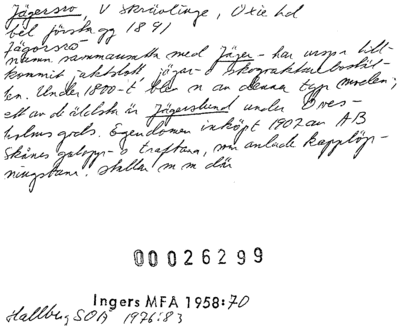 Jägersro V Skrävlinge, Oxie hd
bel första gg 1891
Jägersro
namn sammansatta med Jäger- har urspr till-
kommit jaktslott, jägar- o skogvaktarbostäl-
len. Under 1800-t blev n av denna typ modern;
ett av de äldsta är Jägerslund under Öves-
holms gods. Egendomen inköpt 1902 av AB
Skånes galopp- o travbana, som anlade kapplöp-
ningsbana, stallar m m där
00026299
Ingers MFA 1958:70
Hallberg SOÄ 1976:83